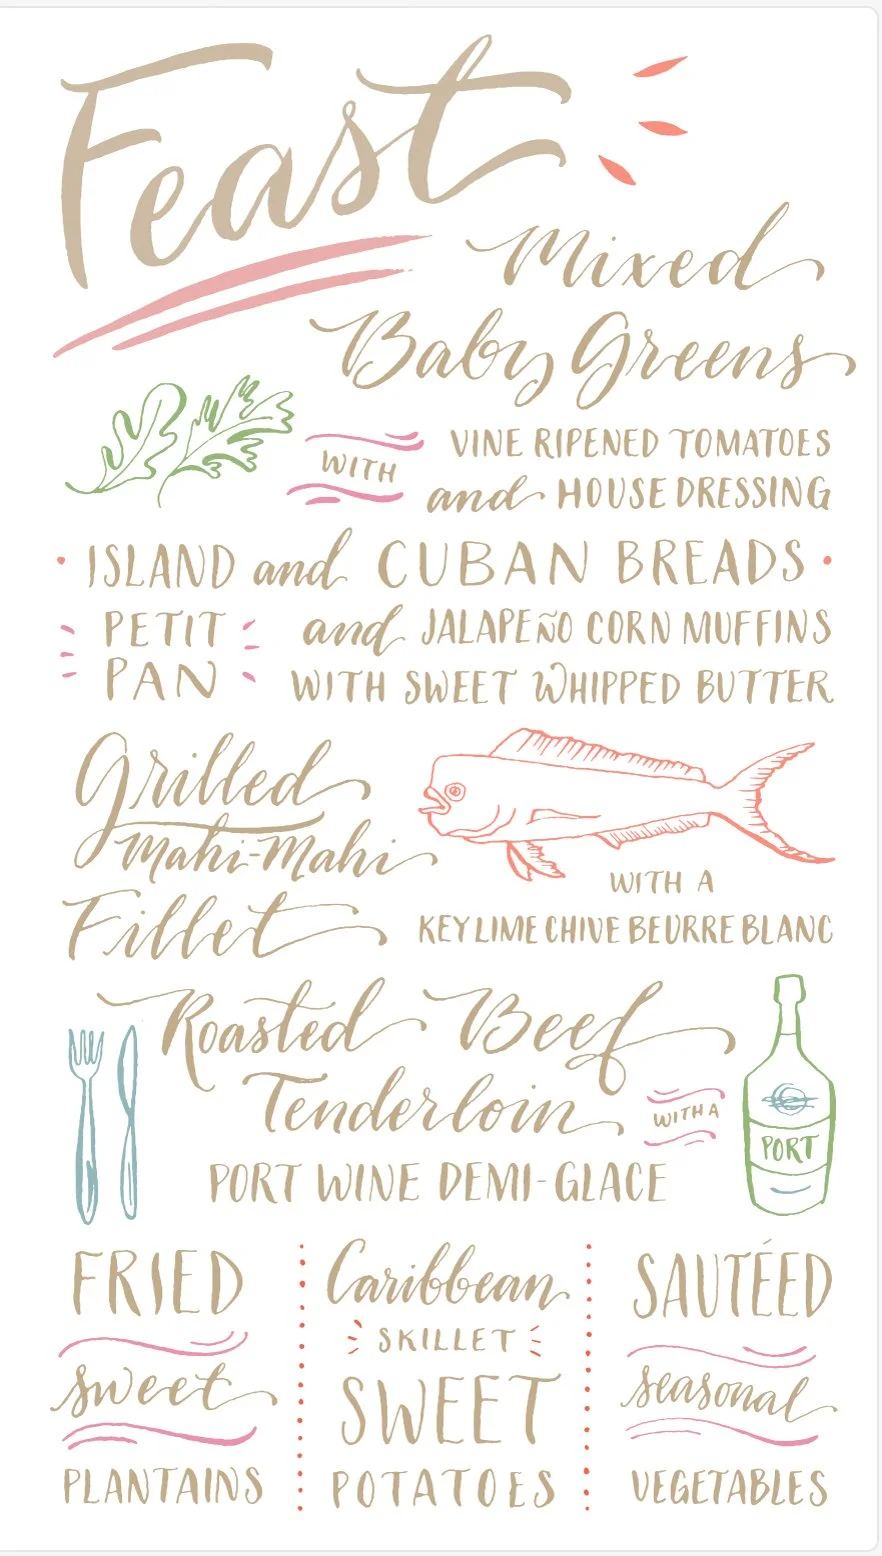 Feast
Mixed
Baby Greens
WITH
VINE RIPENED TOMATOES
and HOUSE DRESSING
ISLAND and CUBAN BREADS
PETIT
PAN
and JALAPEÑO CORN MUFFINS
WITH SWEET WHIPPED BUTTER
Grilled
Mahi-Mahi
Fillet
WITH A
KEY LIME CHIVE BEURRE BLANC
Roasted Beef
Tenderloin
WITH A
PORT WINE DEMI-GLACE
PORT
FRIED
sweet
PLANTAINS
Caribbean
SKILLET
SWEET
POTATOES
SAUTÉED
seasonal
VEGETABLES